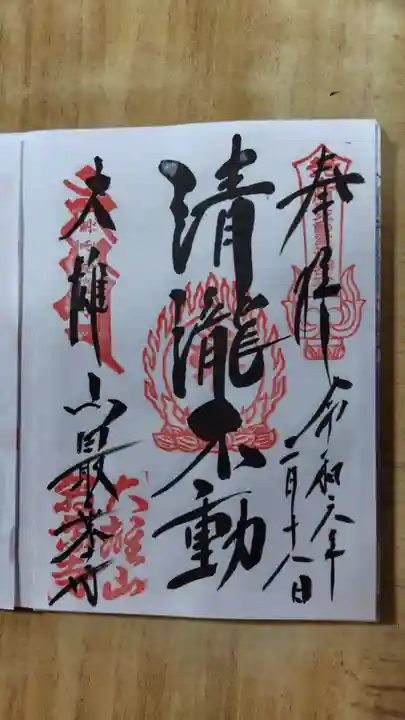 奉拝
令和六年
二月十八日
清瀧不動
大雄山最乗寺
大雄山